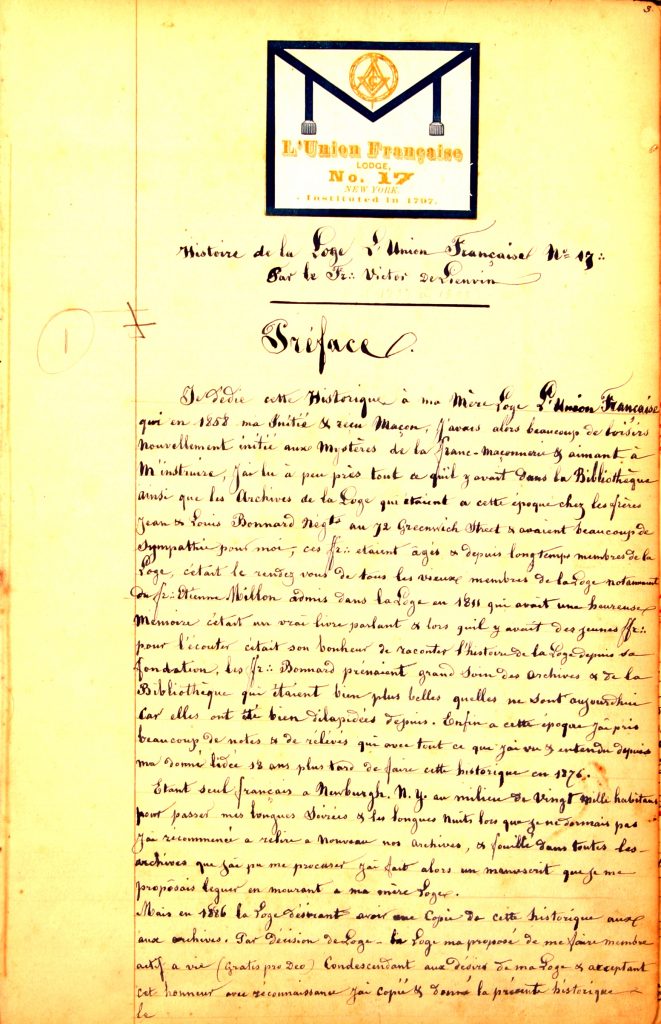 3.
G
L'Union Française
LODGE,
No. 17
NEW YORK.
Instituted in 1797.
Histoire de la Loge L'Union Française Nº 17∴
Par le Fr∴ Victor De Lienvin
1
Préface.
Je dédie cette Historique à ma Mère Loge L'Union Française
qui en 1858 ma Initié & reçu Maçon, J'avais alors beaucoup de loisirs
Nouvellement initié aux Mystères de la franc-maçonnerie & aimant à
M'instruire, J'ai lu à peu près tout ce qu'il y avait dans la Bibliothèque
ainsi que les Archives de la Loge qui étaient a cette époque chez les frères
Jean & Louis Bonnard Négts au 72 Greenwich Street & avaient beaucoup de
Sympathie pour moi, ces fr∴ étaient âgés & depuis longtemps membres de la
Loge, c'était le rendez vous de tous les vieux membres de la Loge notamment
du fr∴ Etienne Millon admis dans la Loge en 1811 qui avait une heureuse
Mémoire c'était un vrai livre parlant & lors qu'il y avait des jeunes ff∴
pour l'écouter c'était son bonheur de raconter l'histoire de la Loge depuis sa
fondation, les ff∴ Bonnard prénaient grand Soin des archives & de la
Bibliothèque qui étaient bien plus belles quelles ne sont aujourd'hui
Car elles ont été bien dilapidées depuis. Enfin a cette époque J'ai pris
beaucoup de notes & de rélévés qui avec tout ce que J'ai vu & entendu depuis
ma donné lidée 18 ans plus tard de faire cette historique en 1876.
Etant seul français a Newburgh. N.Y. au milieu de Vingt mille habitans
pour passer mes longues Soirées & les longues Nuits lors que je ne dormais pas
J'ai recommencé a relire a Nouveau nos archives, & fouillé dans toutes les
archives que J'ai pu me procurer J'ai fait alors un manuscrit que je me
propôsais leguer en mourant a ma mère Loge.
Mais en 1886 la Loge désirant avoir une Copie de cette historique aux
aux archives. Par décision de Loge - la Loge ma proposé de me faire membre
actif a vie (Gratis pro Deo) Condescendant aux désirs de ma Loge & acceptant
cet honneur avec réconnaissance J'ai copié & donné la présente historique
le